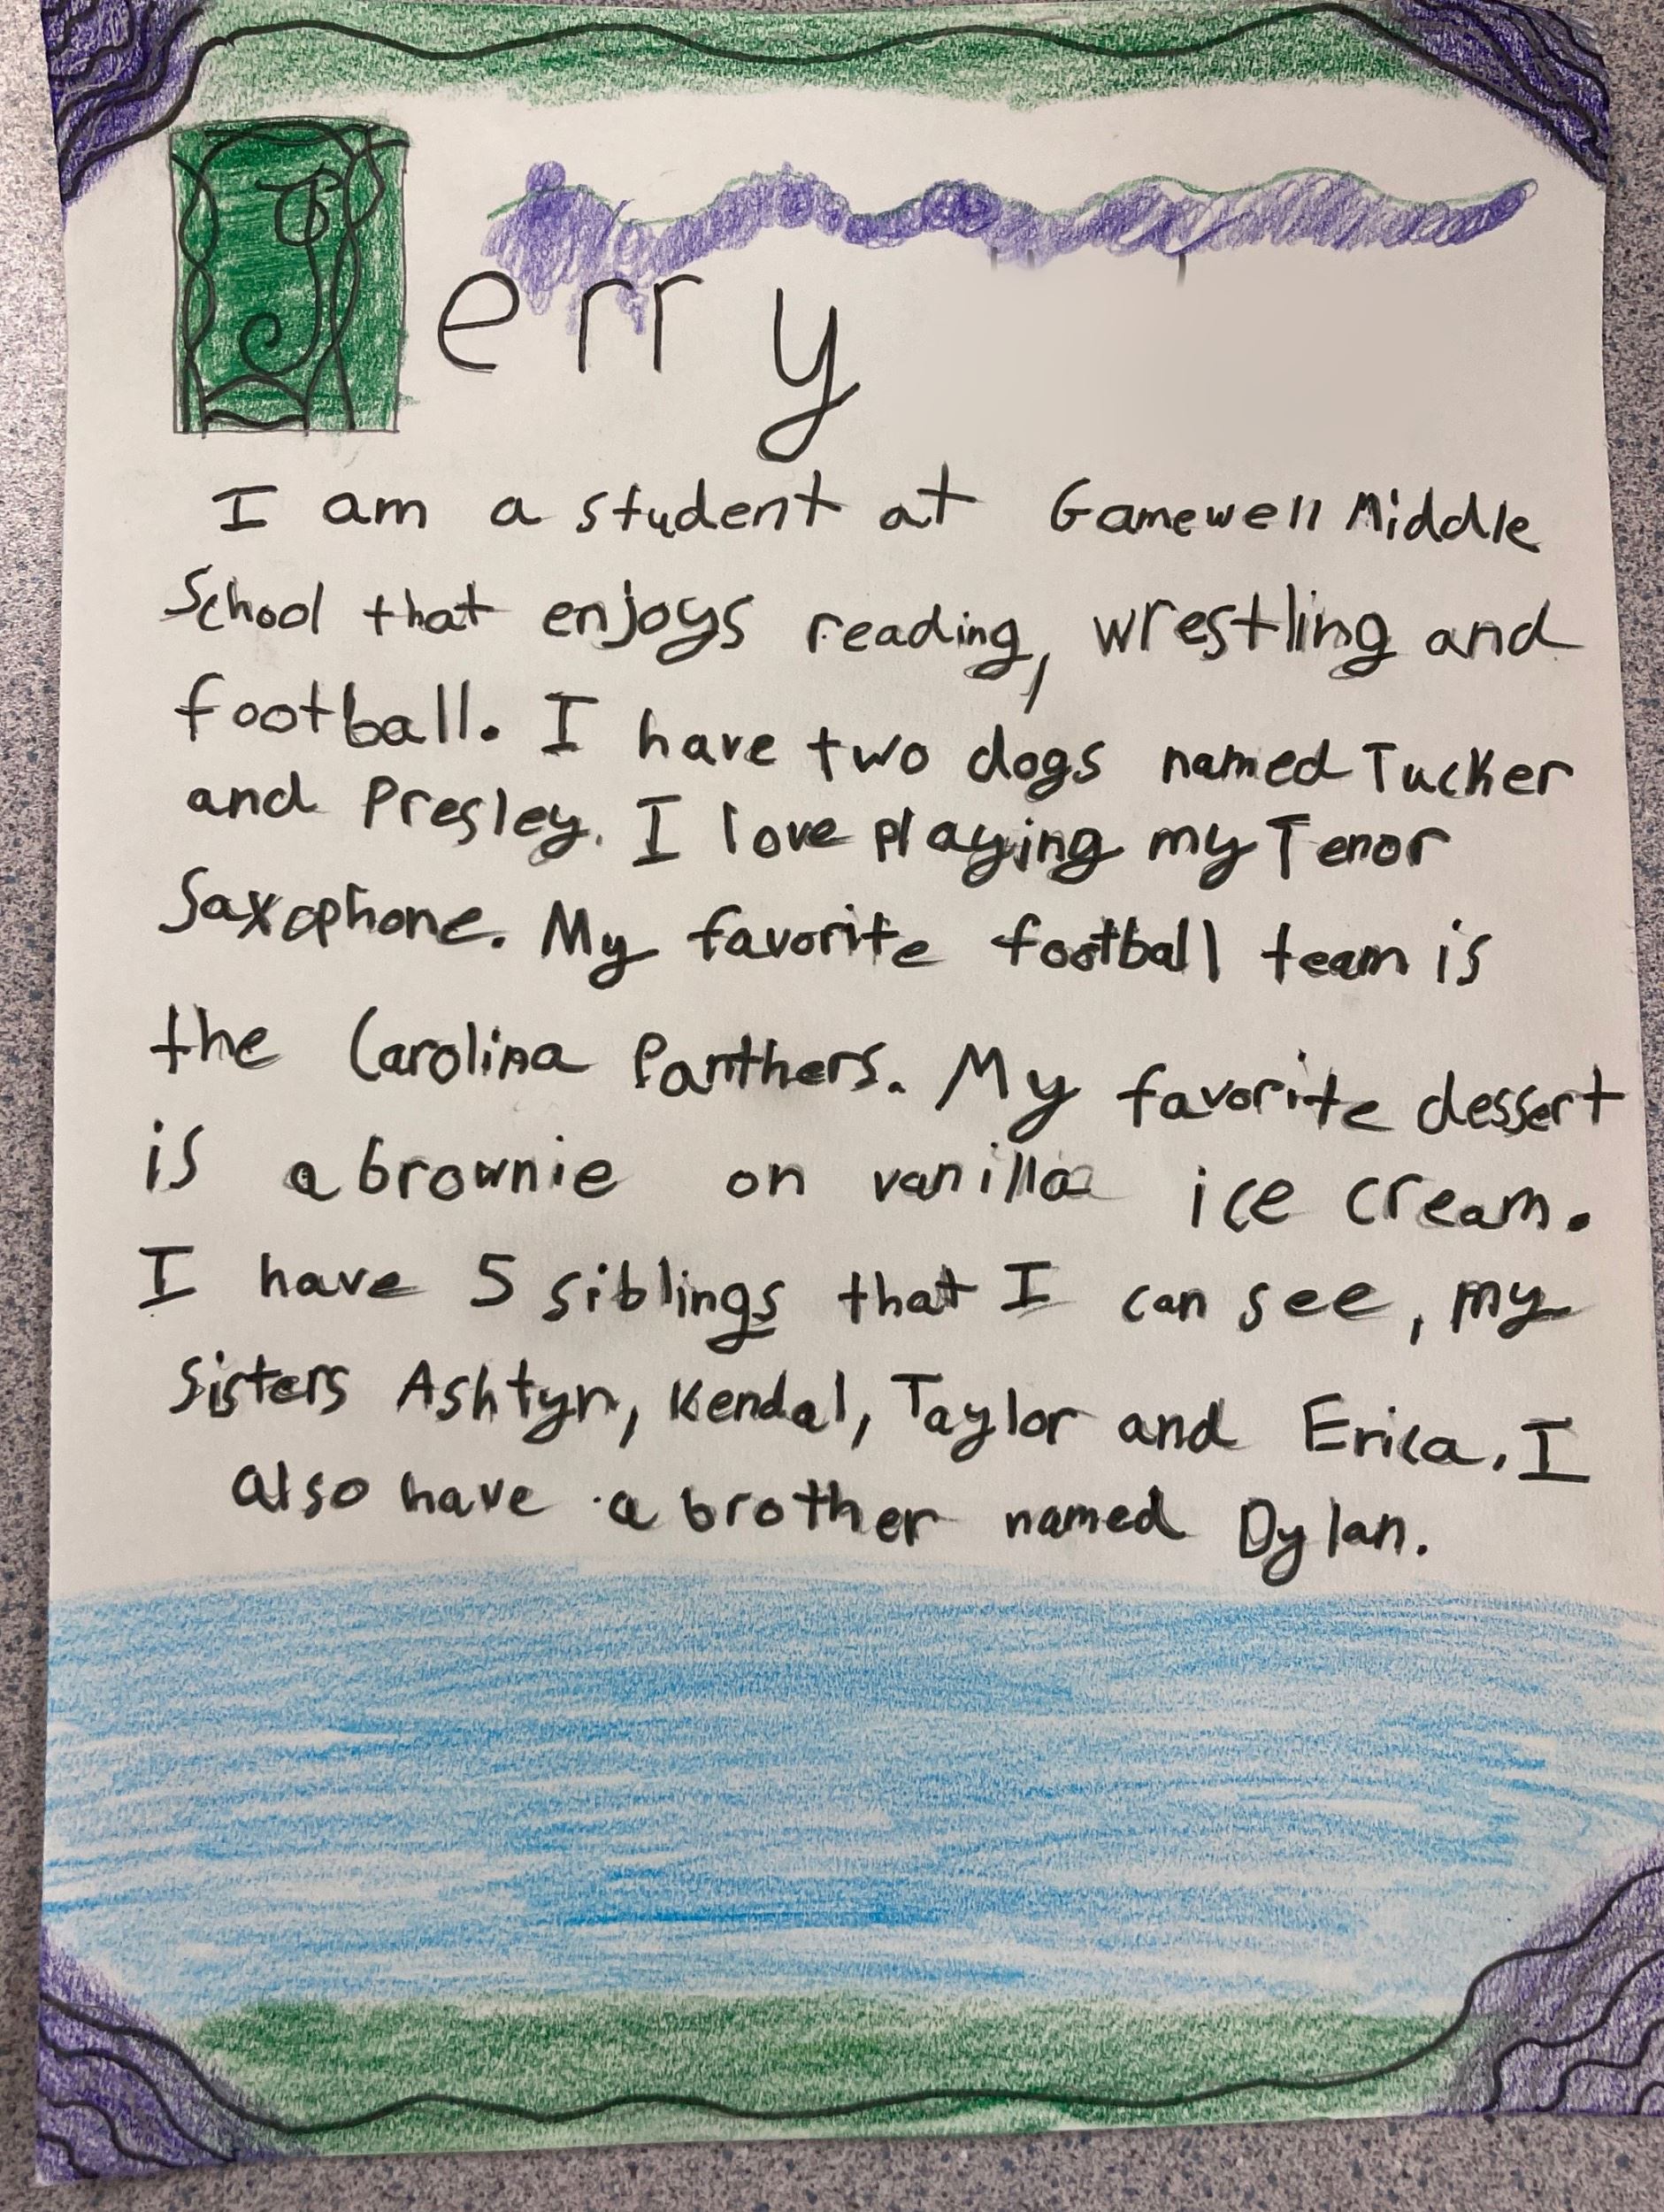 Jerry
I am a student at Gamewell Middle
School that enjoys reading, wrestling and
football. I have two dogs named Tucker
and Presley. I love playing my Tenor
Saxophone. My favorite football team is
the Carolina Panthers. My favorite dessert
is a brownie on vanilla ice cream.
I have 5 siblings that I can see, my
sisters Ashtyn, Kendal, Taylor and Erica. I
also have a brother named Dylan.